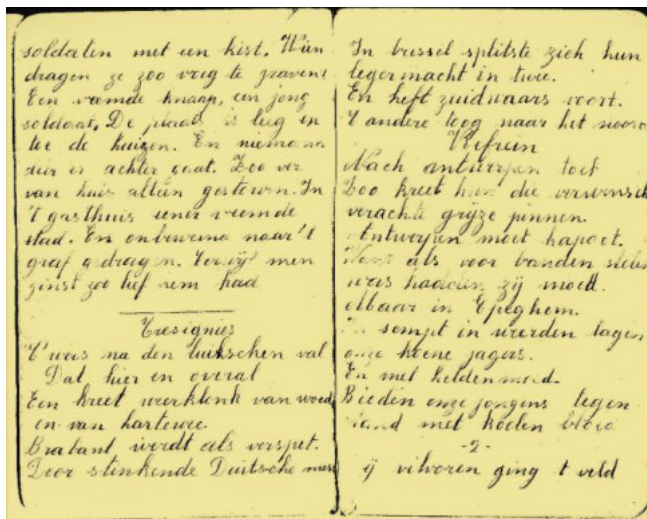 soldaten met een kist. Wien
dragen ze zoo vroeg te gravene
Een vremde knaap, een jong
soldaat, De plaats is leeg en
toe de huizen. En niemand
die er achter gaat. Zoo ver
van huis alleen gestorven. In
't gasthuis eener vreemde
stad. En onbeweend naar 't
graf gedragen. Terwijl men
ginst zoo lief hem had
Tresignies
't was na den luikschen val
Dat hier en overal
Een kreet weerklonk van woed
en van hartewee.
Brabant werdt als verspet.
Door stinkende Duitsche
In brussel splitste zich hun
legermacht in twee.
En heft zuidwaars voort.
't andere toog naar het noord
Refrein
Nach antwerpen toet
Zoo kreet hun die verwensch
verachte grijze pinnen.
Antwerpen moet kapoet.
als voor banden
was hadden zij moed.
elbaar in Epeghem.
sompt in weerden lagen
onze koene jagers.
En met heldenmoed.
Bieden onze jongens tegen
stand met koelen bloed
-2-
ij vilvoren ging t veld